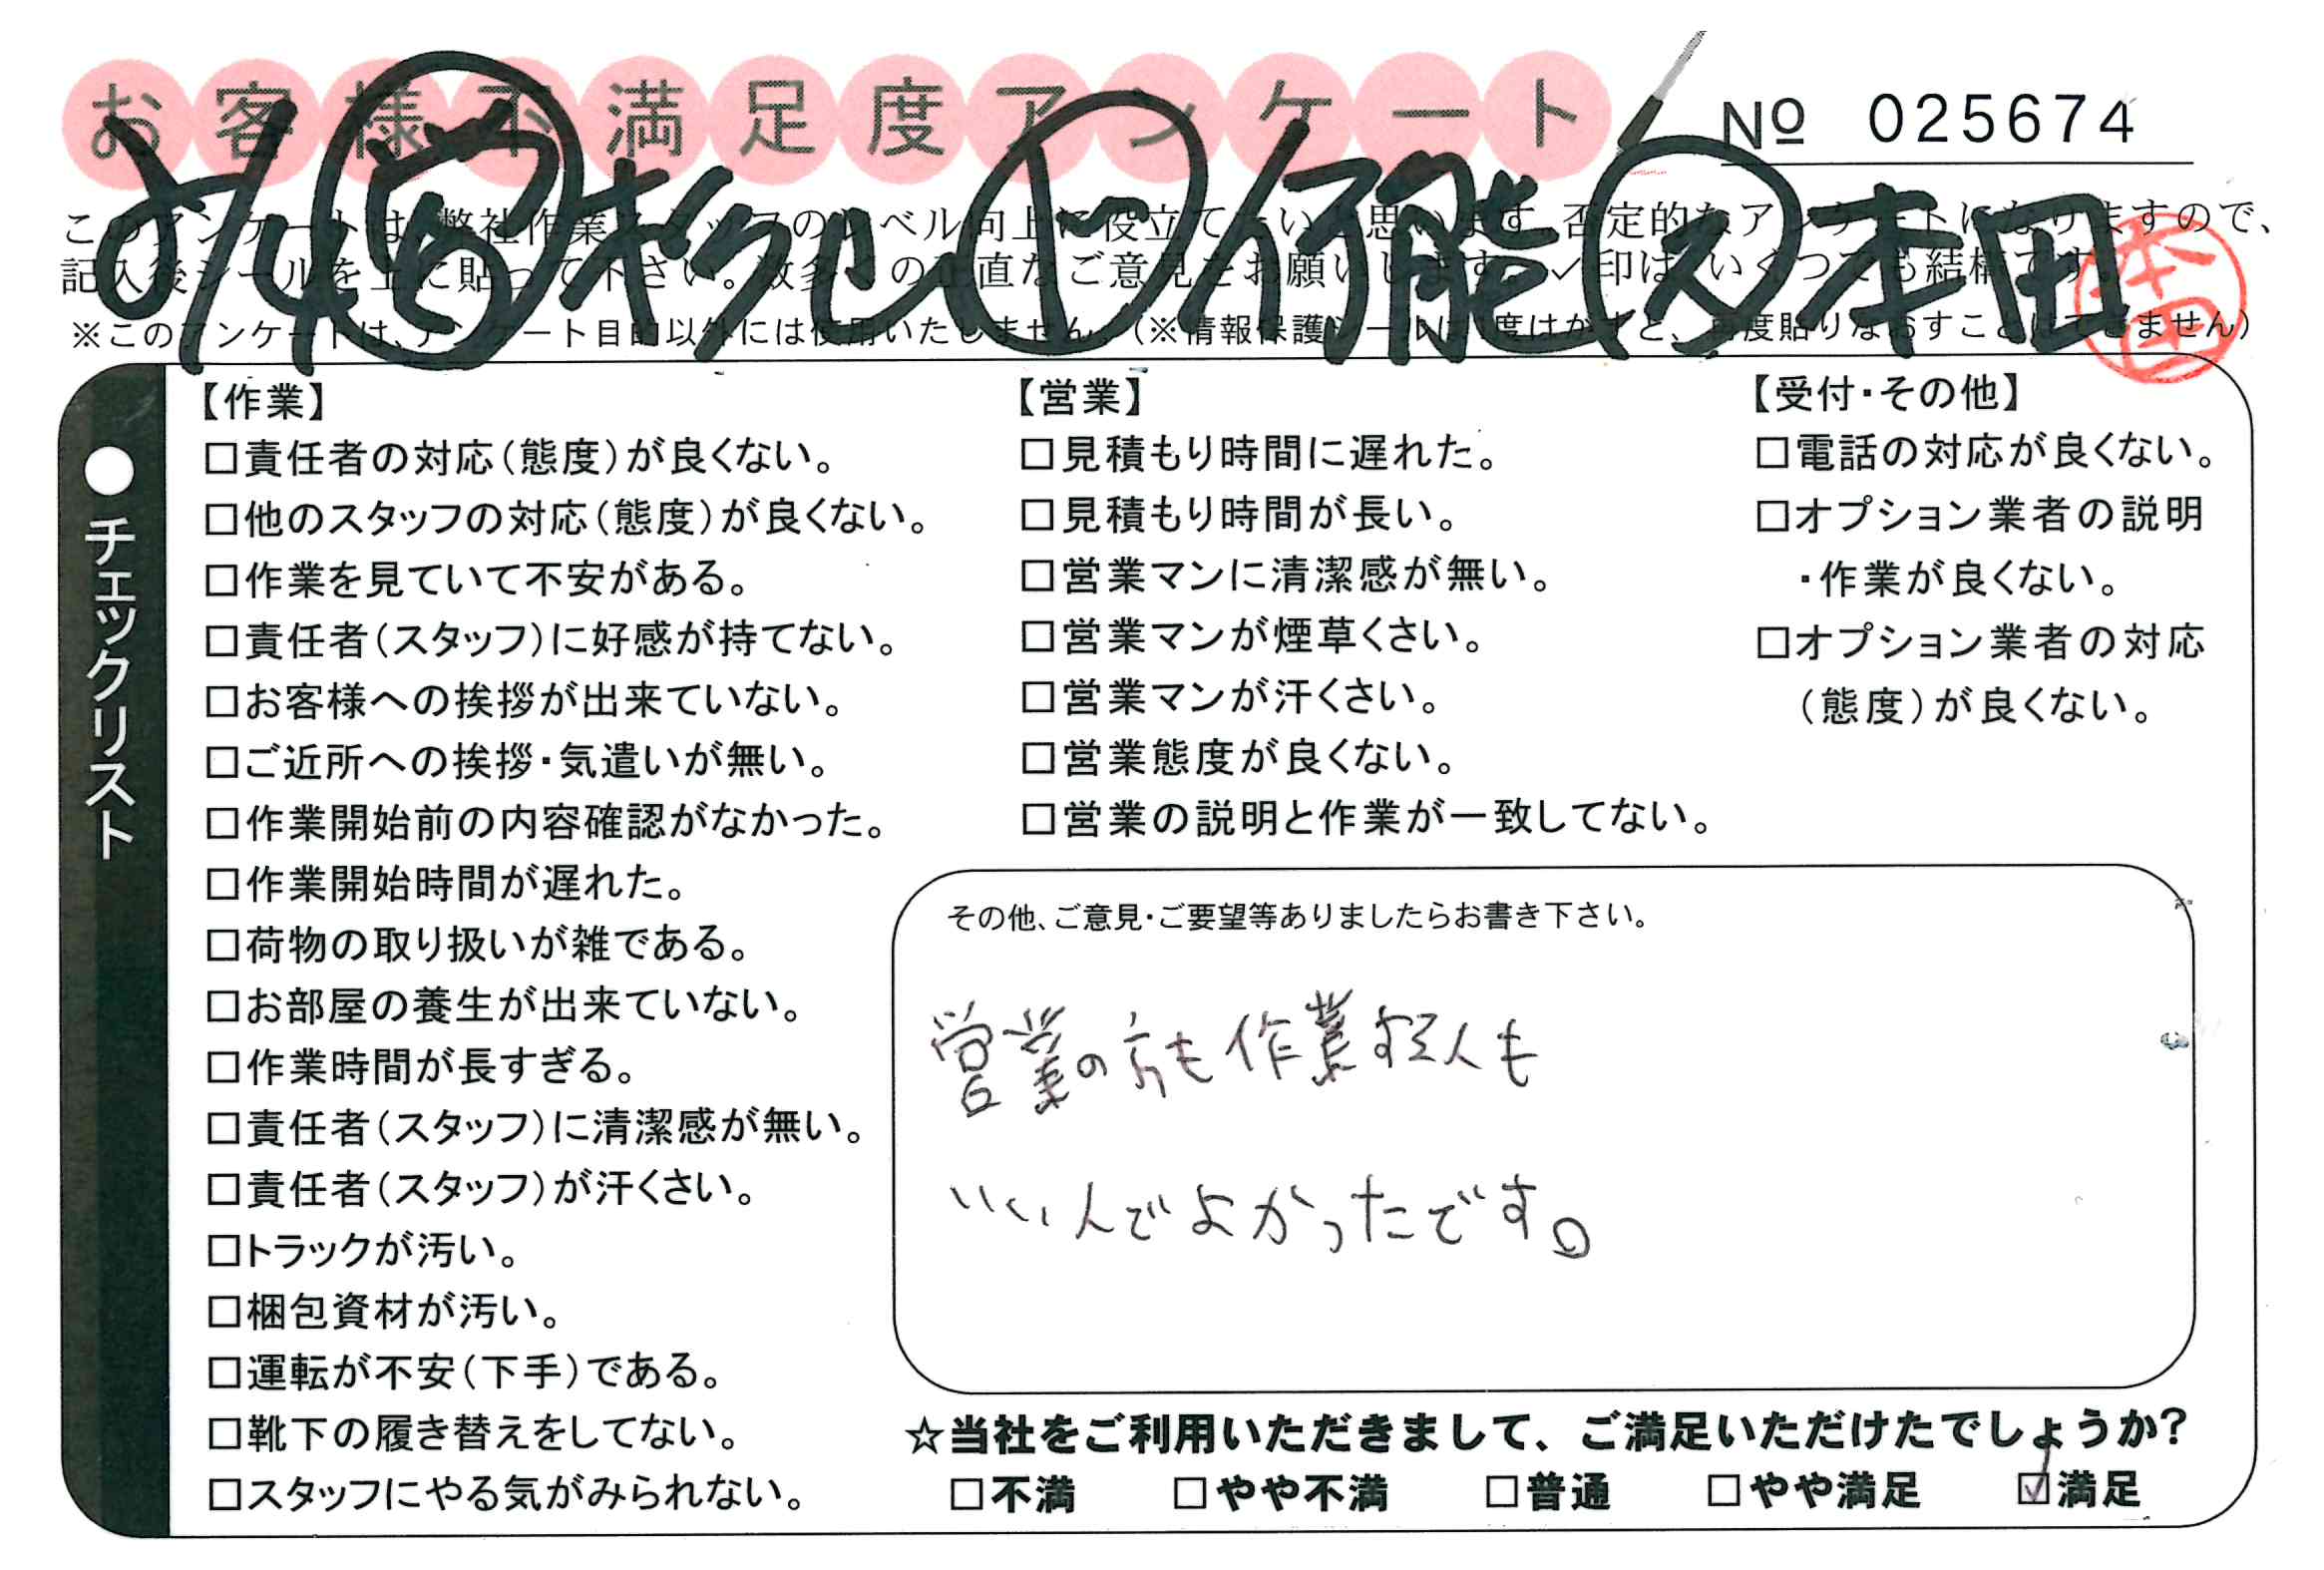 お客様不満足度アンケート
№ 025674
このアンケートは、弊社作業スタッフのレベル向上に役立てたいと思います。否定的なアンケートになりますので、
記入後シールを上に貼って下さい。数多くの正直なご意見をお願いします。✓印は、いくつでも結構です。
※このアンケートは、アンケート目的以外には使用いたしません。(※情報保護シールは1度はがすと、再度貼りなおすことはできません)
本田
本田
●チェックリスト
【作業】
□責任者の対応(態度)が良くない。
□他のスタッフの対応(態度)が良くない。
□作業を見ていて不安がある。
□責任者(スタッフ)に好感が持てない。
□お客様への挨拶が出来ていない。
□ご近所への挨拶・気遣いが無い。
□作業開始前の内容確認がなかった。
□作業開始時間が遅れた。
□荷物の取り扱いが雑である。
□お部屋の養生が出来ていない。
□作業時間が長すぎる。
□責任者(スタッフ)に清潔感が無い。
□責任者(スタッフ)が汗くさい。
□トラックが汚い。
□梱包資材が汚い。
□運転が不安(下手)である。
□靴下の履き替えをしてない。
□スタッフにやる気がみられない。
【営業】
□見積もり時間に遅れた。
□見積もり時間が長い。
□営業マンに清潔感が無い。
□営業マンが煙草くさい。
□営業マンが汗くさい。
□営業態度が良くない。
□営業の説明と作業が一致してない。
【受付・その他】
□電話の対応が良くない。
□オプション業者の説明
・作業が良くない。
□オプション業者の対応
(態度)が良くない。
その他、ご意見・ご要望等ありましたらお書き下さい。
営業の方も作業する人も
いい人でよかったです。
☆当社をご利用いただきまして、ご満足いただけたでしょうか?
□不満 □やや不満 □普通 □やや満足 ☑満足